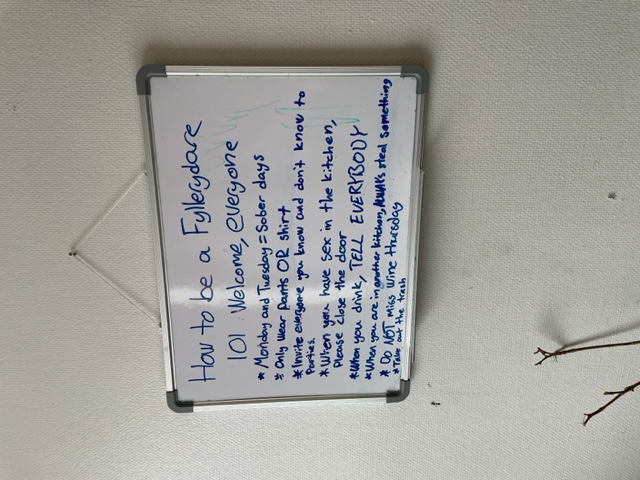 How to be a Fyllerydare
101 Welcome, everyone
* Monday and Tuesday = Sober days
* Only wear pants OR shirt
* Invite everyone you know and don't know to
Parties.
* When you have sex in the kitchen,
Please close the door
* When you drink, TELL EVERYBODY
* When you are in another kitchen, ALWAYS steal something
* DO NOT Miss Wine thursday
* Take out the trash